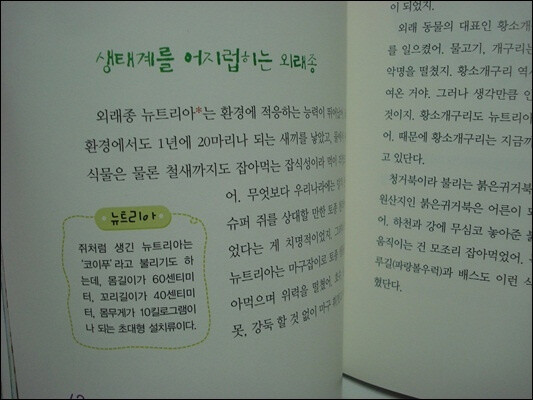 생태계를 어지럽히는 외래종
외래종 뉴트리아*는 환경에 적응하는 능력이
환경에서도 1년에 20마리나 되는 새끼를 낳았고,
식물은 물론 철새까지도 잡아먹는 잡식성이라 먹이
어. 무엇보다 우리나라에는
슈퍼 쥐를 상대할 만한 토종
었다는 게 치명적이었지. 그러
뉴트리아는 마구잡이로 토종
아먹으며 위력을 떨쳤어.
못, 강둑 할 것 없이 마구
뉴트리아
쥐처럼 생긴 뉴트리아는
‘코이푸’라고 불리기도 하
는데, 몸길이가 60센티미
터, 꼬리길이가 40센티미
터, 몸무게가 10킬로그램이
나 되는 초대형 설치류이다.
이 되었지.
외래 동물의 대표인 황소개
를 일으켰어. 물고기, 개구리는
악명을 떨쳤지. 황소개구리 역시
여온 거야. 그러나 생각만큼 인
것이지. 황소개구리도 뉴트리아
어. 때문에 황소개구리는 지금까
고 있단다.
청거북이라 불리는 붉은귀거북
원산지인 붉은귀거북은 어른이
어. 하천과 강에 무심코 놓아준 붉
움직이는 건 모조리 잡아먹었어.
루길(파랑볼우럭)과 배스도 이런 식
했단다.